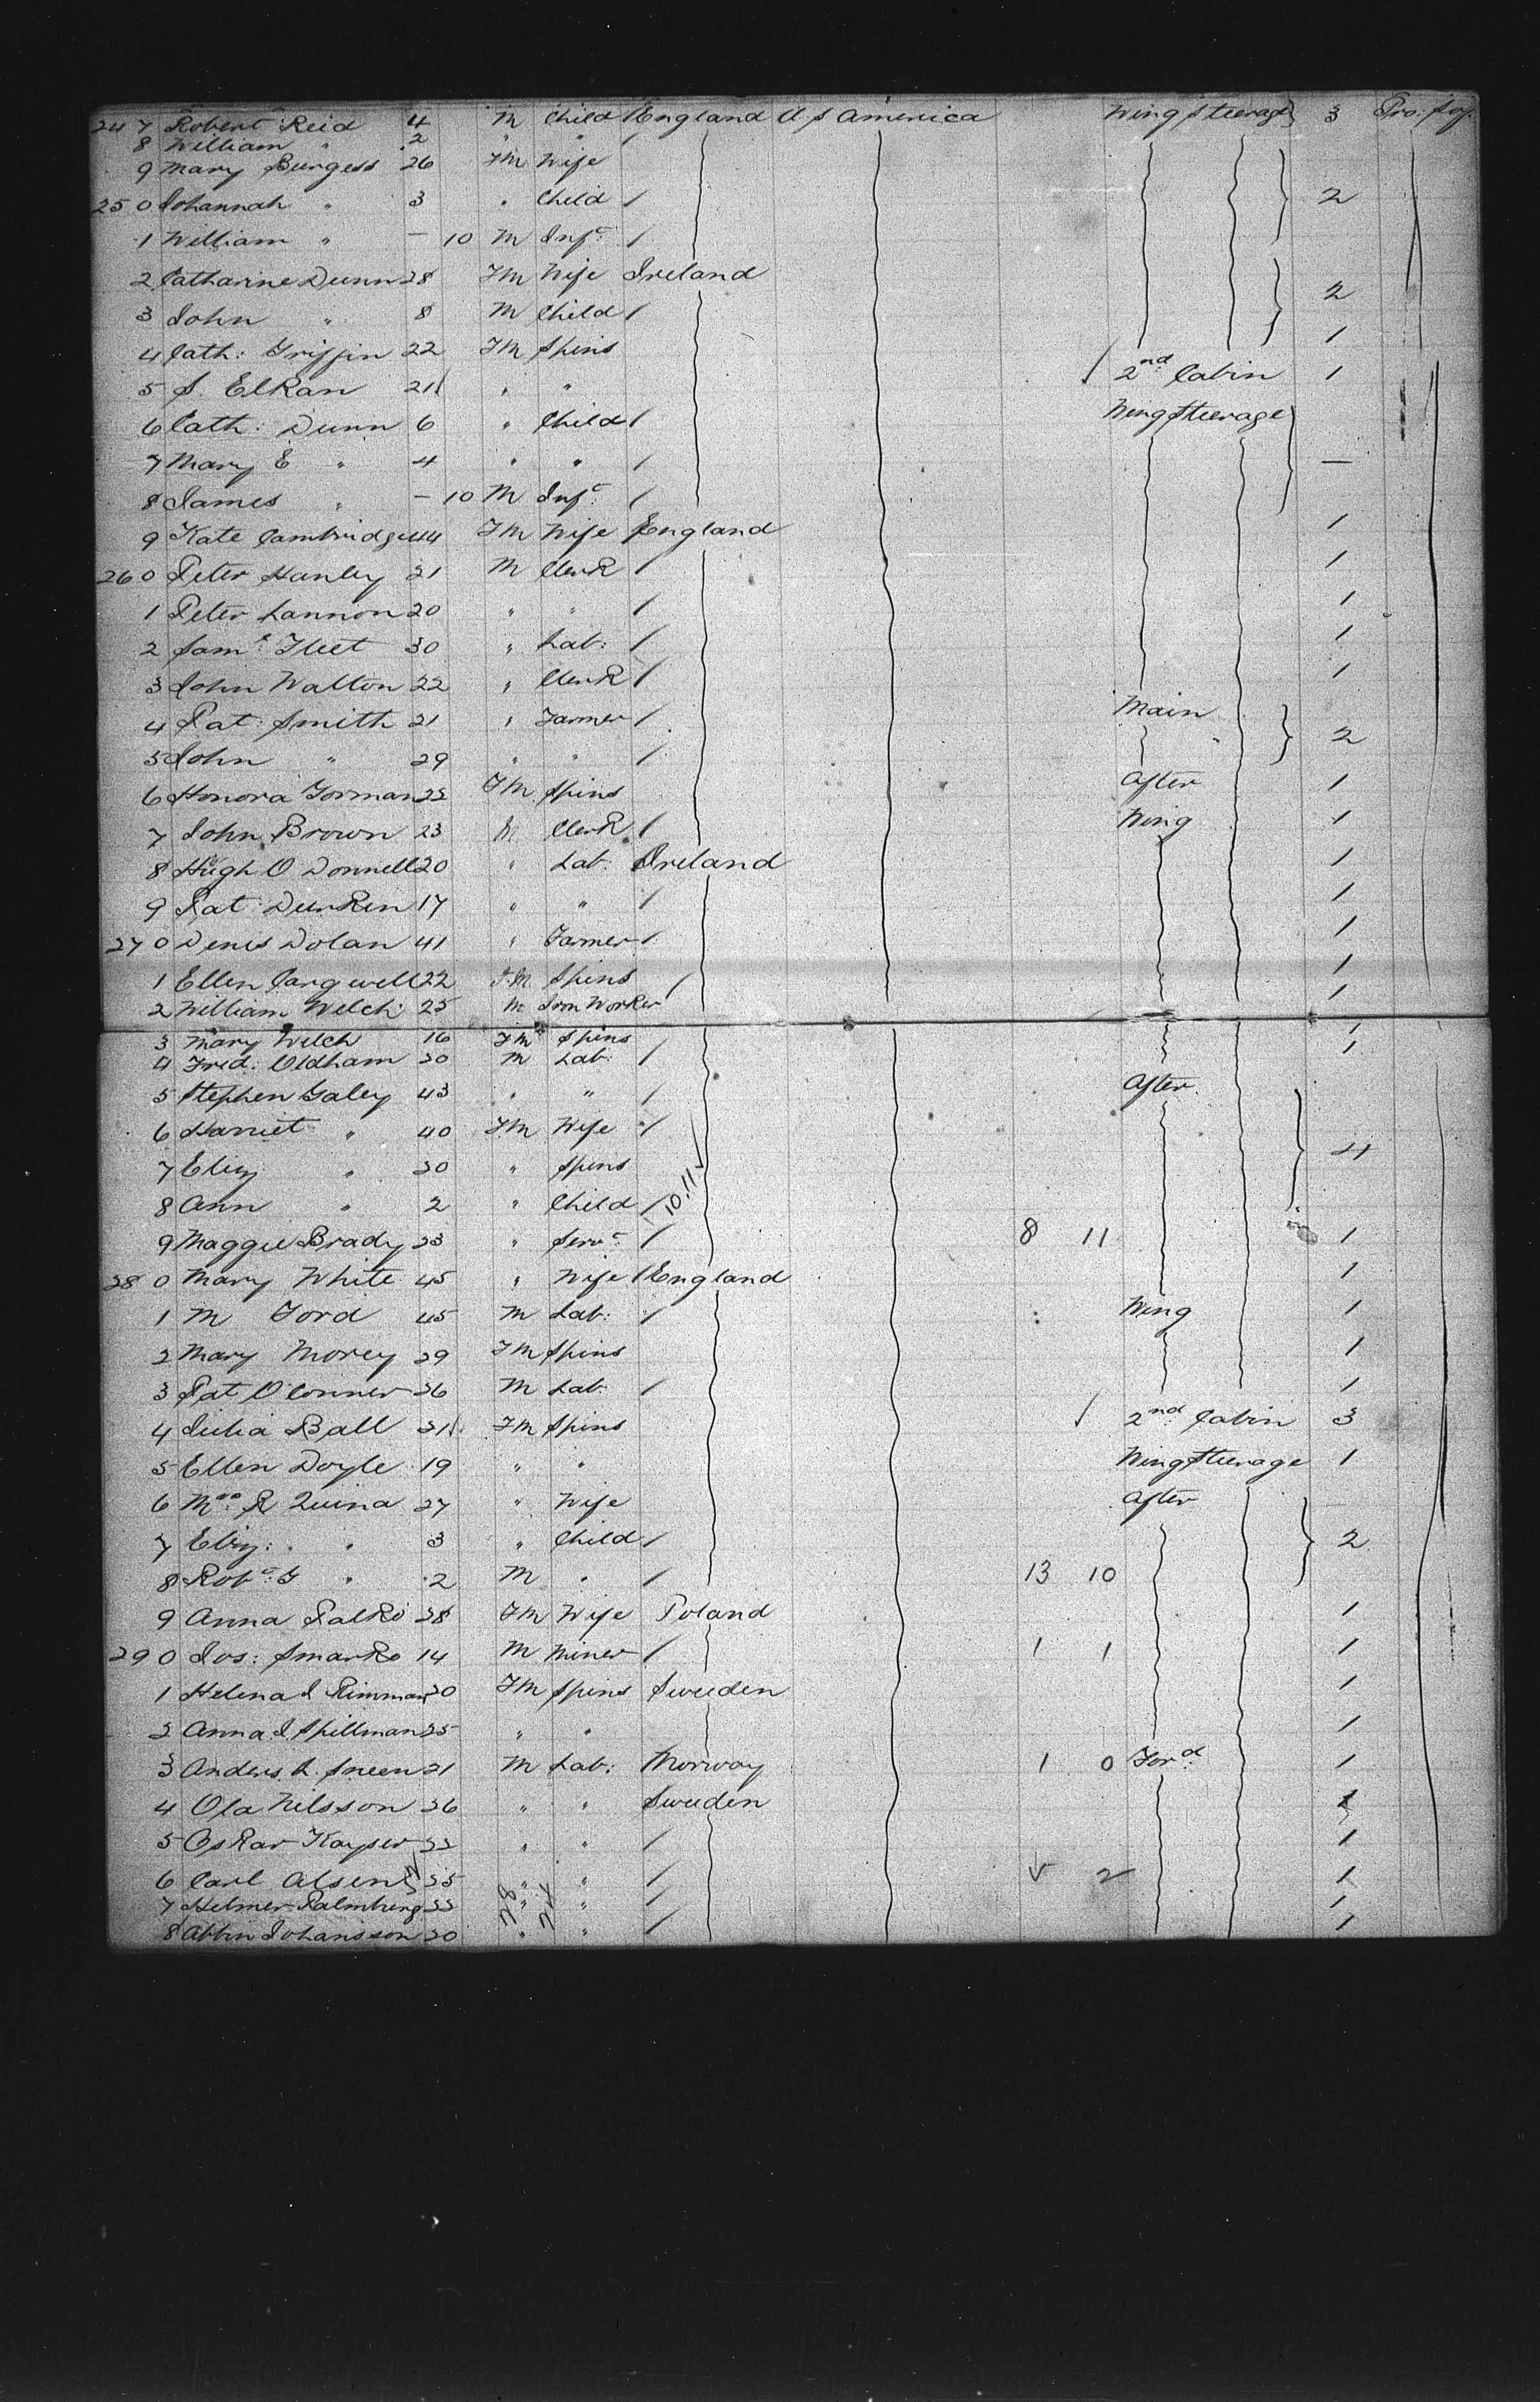 247 Robert Reid 4 M Child / England U S America Wing Steerage 3 Pro: Soj.
8 William " 2 " " /
9 Mary Burgess 26 FM Wife
250 Johannah " 3 " Child / 2
1 William " — 10 M Inft /
2 Catharine Dunn 28 FM Wife Ireland
3 John " 8 M Child / 2
4 Cath: Griffin 22 FM Spins 1
5 S. ElKan 21 " " / 2nd Cabin 1
6 Cath: Dunn 6 " Child / Wing Steerage
7 Mary E " 4 " " / —
8 James " — 10 M Inft /
9 Kate Cambridge 44 FM Wife England 1
260 Peter Hanley 21 M Clerk / 1
1 Peter Lannon 20 " " / 1
2 Saml Fleet 30 " Lab: / 1
3 John Walton 22 " Clerk / 1
4 Pat: Smith 21 " Farmer / Main 2
5 John " 29 " " /
6 Honora Gorman 22 FM Spins After 1
7 John Brown 23 M Clerk / Wing 1
8 Hugh O Donnell 20 " Lab. Ireland 1
9 Pat: Durkin 17 " " / 1
270 Denis Dolan 41 " Farmer / 1
1 Ellen Cargwell 22 FM Spins / 1
2 William Welch 25 M Iron Worker 1
3 Mary Welch 16 FM Spins 1
4 Fred: Oldham 20 M Lab: / 1
5 Stephen Galey 43 " " / After
6 Harriet " 40 FM Wife / 4
7 Eliz " 20 " Spins
8 Ann " 2 " Child / 10.11.
9 Maggie Brady 23 " Servt / 8 11 1
280 Mary White 45 " Wife / England 1
1 M Ford 45 M Lab: / Wing 1
2 Mary Morey 29 FM Spins 1
3 Pat O'Conner 26 M Lab: / 1
4 Julia Ball 21 FM Spins / 2nd Cabin 3
5 Ellen Doyle 19 " " Wing Steerage 1
6 Mrs R Quina 27 " Wife After
7 Eliz: " 3 " Child / 2
8 Robt G " 2 M " / 13 10
9 Anna Palko 28 FM Wife Poland 1
290 Jos: Smarko 14 M Miner / 1 1 1
1 Helena J Rimman 20 FM Spins Sweden 1
2 Anna J. Spillman 25 " " 1
3 Anders L. Sneen 21 M Lab: Norway 1 0 Ford 1
4 Ola Nilsson 26 " " Sweden 1
5 Oskar Kayser 22 " " / 1
6 Carl Olsen 25 " " / 2 1
7 Helmer Palmberg 22 " " / 1
8 Albin Johansson 20 " " / 1